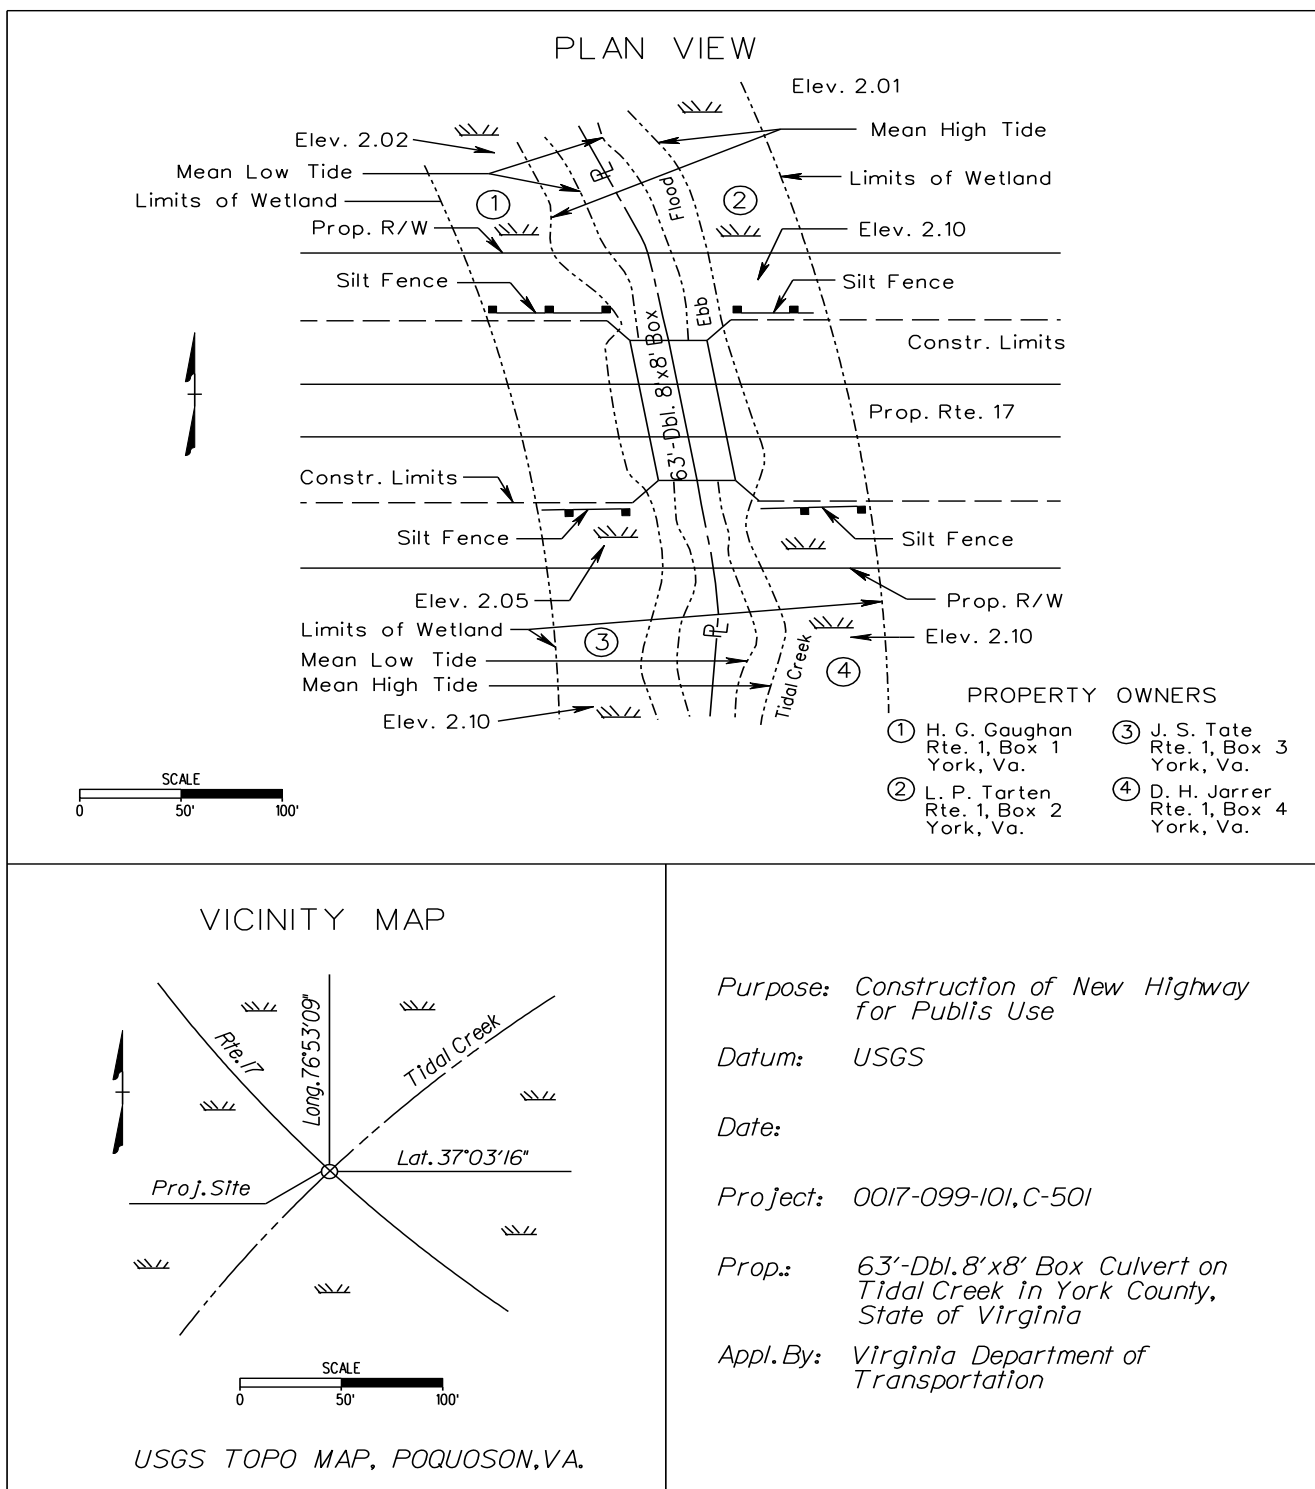 PLAN VIEW
Elev. 2.01
Mean High Tide
Elev. 2.02
Mean Low Tide
Limits of Wetland
Limits of Wetland
1
2
PL
Flood
Prop. R/W
Elev. 2.10
Silt Fence
Silt Fence
Ebb
Constr. Limits
63'-Dbl. 8'x8' Box
Prop. Rte. 17
Constr. Limits
Silt Fence
Silt Fence
Elev. 2.05
Prop. R/W
Limits of Wetland
3
PL
Elev. 2.10
Mean Low Tide
Mean High Tide
Tidal Creek
4
Elev. 2.10
PROPERTY OWNERS
1 H. G. Gaughan
Rte. 1, Box 1
York, Va.
2 L. P. Tarten
Rte. 1, Box 2
York, Va.
3 J. S. Tate
Rte. 1, Box 3
York, Va.
4 D. H. Jarrer
Rte. 1, Box 4
York, Va.
SCALE
0 50' 100'
VICINITY MAP
Rte. 17
Long. 76°53'09"
Tidal Creek
Lat. 37°03'16"
Proj. Site
SCALE
0 50' 100'
USGS TOPO MAP, POQUOSON, VA.
Purpose: Construction of New Highway
for Publis Use
Datum: USGS
Date:
Project: 0017-099-101, C-501
Prop.: 63'-Dbl. 8'x8' Box Culvert on
Tidal Creek in York County,
State of Virginia
Appl. By: Virginia Department of
Transportation